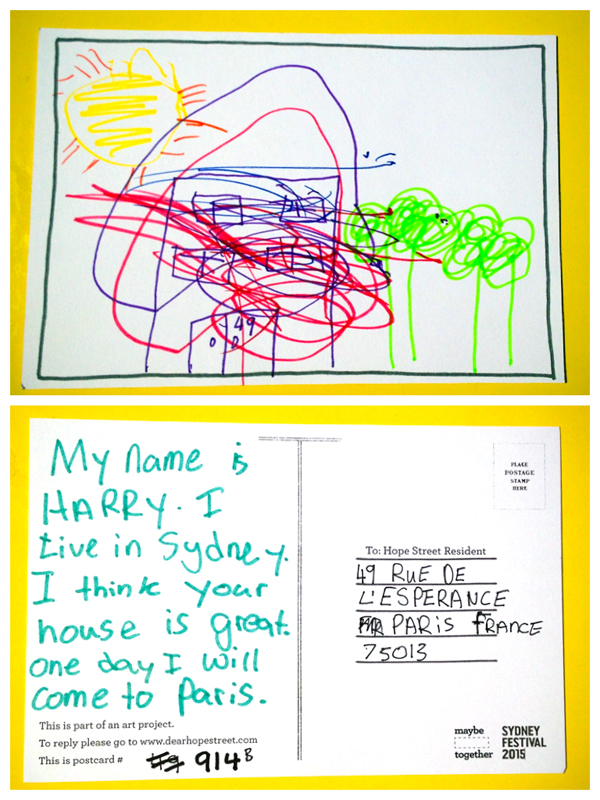 49
My name is
HARRY. I
Live in Sydney.
I think your
house is great.
one day I will
come to Paris.
This is part of an art project.
To reply please go to www.dearhopestreet.com
This is postcard # 914B
PLACE
POSTAGE
STAMP
HERE
To: Hope Street Resident
49 RUE DE
L'ESPERANCE
PARIS FRANCE
75013
maybe
together
SYDNEY
FESTIVAL
2015